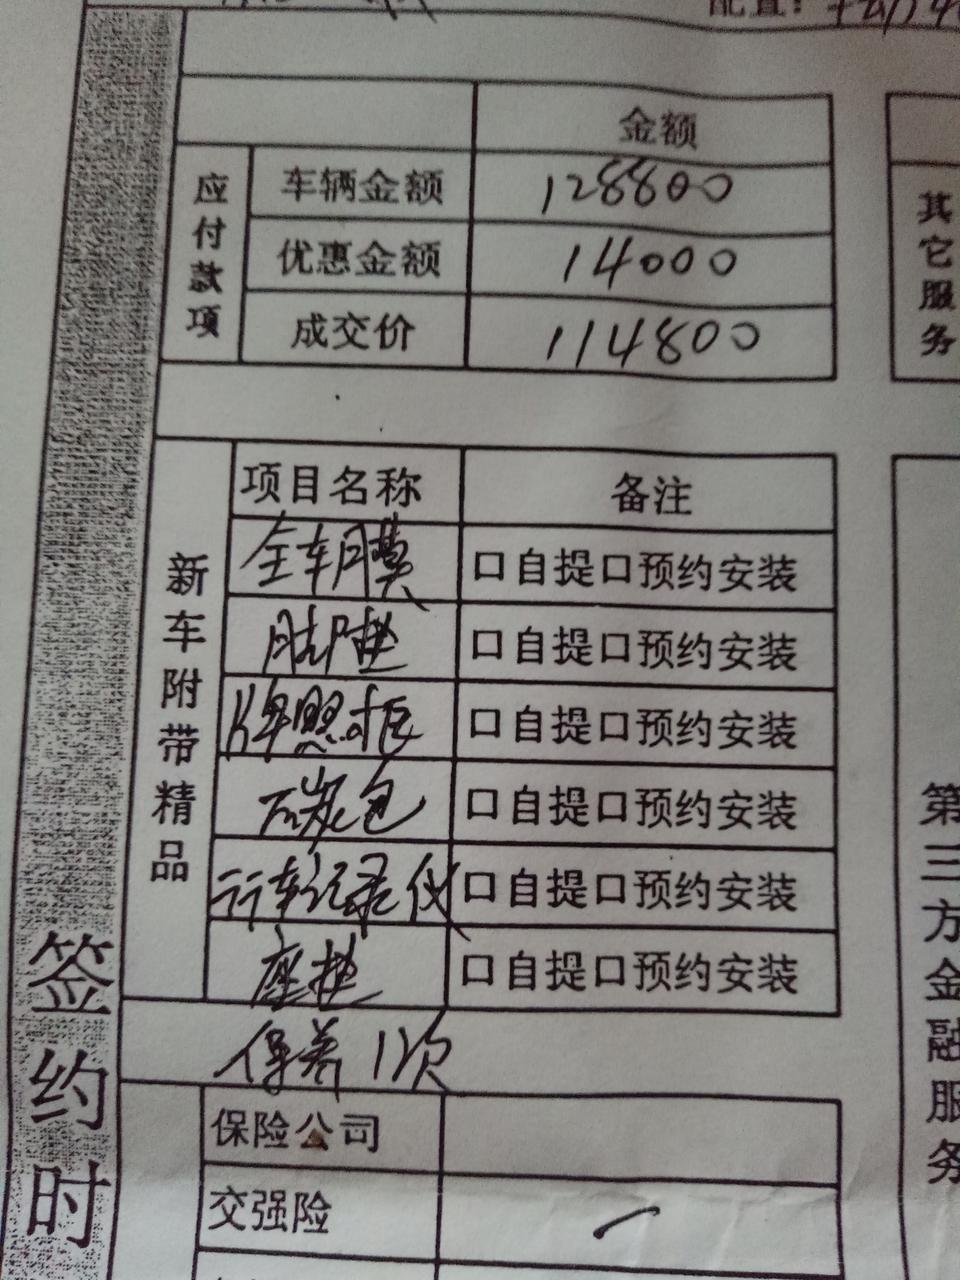 配置：
金额
应付款项
车辆金额 128800
优惠金额 14000
成交价 114800
其它服务
新车附带精品
项目名称 备注
全车膜 口自提口预约安装
脚垫 口自提口预约安装
牌照框 口自提口预约安装
碳包 口自提口预约安装
行车记录仪 口自提口预约安装
座垫 口自提口预约安装
保养1次
签约时
保险公司
交强险
第三方金融服务